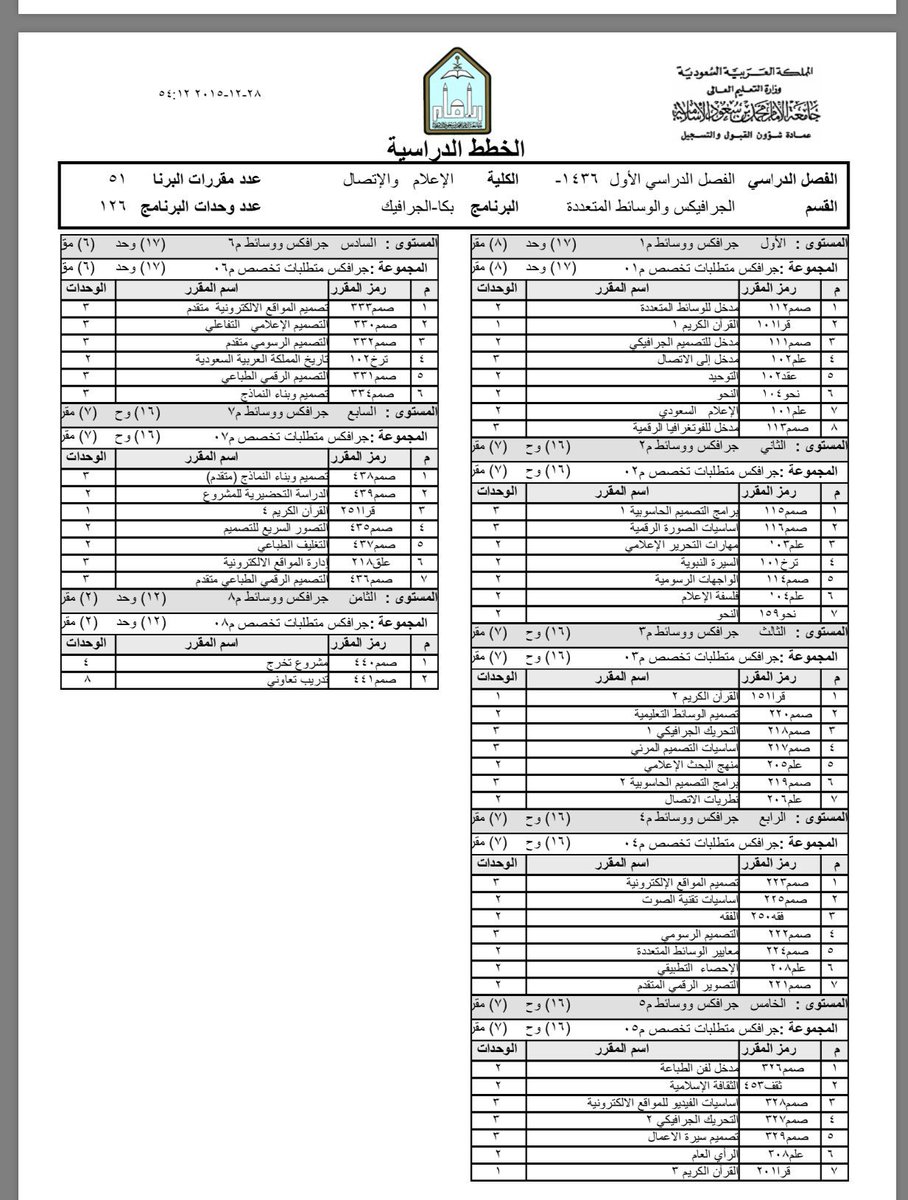 المملكة العربية السعودية
وزارة التعليم العالى
جامعة الإمام محمد بن سعود الإسلامية
عمادة شؤون القبول والتسجيل
٢٨-١٢-٢٠١٥ ٥٤:١٢
الخطط الدراسية
الفصل الدراسي الفصل الدراسي الأول ١٤٣٦- الكلية الإعلام والإتصال عدد مقررات البرنا ٥١
القسم الجرافيكس والوسائط المتعددة البرنامج بكا-الجرافيك عدد وحدات البرنامج ١٢٦
المستوى : الأول جرافكس ووسائط م١ (١٧) وحد (٨) مقر
المجموعة :جرافكس متطلبات تخصص م٠١ (١٧) وحد (٨) مقر
م رمز المقرر اسم المقرر الوحدات
١ صمم١١٢ مدخل للوسائط المتعددة ٢
٢ قرا١٠١ القرآن الكريم ١ ١
٣ صمم١١١ مدخل للتصميم الجرافيكي ٢
٤ علم١٠٢ مدخل إلى الاتصال ٣
٥ عقد١٠٢ التوحيد ٢
٦ نحو١٠٤ النحو ٢
٧ علم١٠١ الإعلام السعودي ٢
٨ صمم١١٣ مدخل للفوتغرافيا الرقمية ٣
المستوى : الثاني جرافكس ووسائط م٢ (١٦) وح (٧) مقر
المجموعة :جرافكس متطلبات تخصص م٠٢ (١٦) وح (٧) مقر
م رمز المقرر اسم المقرر الوحدات
١ صمم١١٥ برامج التصميم الحاسوبية ١ ٣
٢ صمم١١٦ اساسيات الصورة الرقمية ٣
٣ علم١٠٣ مهارات التحرير الإعلامي ٢
٤ ترخ١٠١ السيرة النبوية ٢
٥ صمم١١٤ الواجهات الرسومية ٢
٦ علم١٠٤ فلسفة الإعلام ٢
٧ نحو١٥٩ النحو ٢
المستوى : الثالث جرافكس ووسائط م٣ (١٦) وح (٧) مقر
المجموعة :جرافكس متطلبات تخصص م٠٣ (١٦) وح (٧) مقر
م رمز المقرر اسم المقرر الوحدات
١ قرا١٥١ القرآن الكريم ٢ ١
٢ صمم٢٢٠ تصميم الوسائط التعليمية ٢
٣ صمم٢١٨ التحريك الجرافيكي ١ ٣
٤ صمم٢١٧ اساسيات التصميم المرئي ٣
٥ علم٢٠٥ منهج البحث الإعلامي ٢
٦ صمم٢١٩ برامج التصميم الحاسوبية ٢ ٣
٧ علم٢٠٦ نظريات الاتصال ٢
المستوى : الرابع جرافكس ووسائط م٤ (١٦) وح (٧) مقر
المجموعة :جرافكس متطلبات تخصص م٠٤ (١٦) وح (٧) مقر
م رمز المقرر اسم المقرر الوحدات
١ صمم٢٢٣ تصميم المواقع الإلكترونية ٣
٢ صمم٢٢٥ اساسيات تقنية الصوت ٢
٣ فقه٢٥٠ الفقه ٢
٤ صمم٢٢٢ التصميم الرسومي ٣
٥ صمم٢٢٤ معايير الوسائط المتعددة ٢
٦ علم٢٠٨ الإحصاء التطبيقي ٢
٧ صمم٢٢١ التصوير الرقمي المتقدم ٢
المستوى : الخامس جرافكس ووسائط م٥ (١٦) وح (٧) مقر
المجموعة :جرافكس متطلبات تخصص م٠٥ (١٦) وح (٧) مقر
م رمز المقرر اسم المقرر الوحدات
١ صمم٣٢٦ مدخل لفن الطباعة ٢
٢ ثقف٤٥٣ الثقافة الإسلامية ٢
٣ صمم٣٢٨ اساسيات الفيديو للمواقع الالكترونية ٣
٤ صمم٣٢٧ التحريك الجرافيكي ٢ ٣
٥ صمم٣٢٩ تصميم سيرة الاعمال ٣
٦ علم٣٠٨ الرأي العام ٢
٧ قرا٢٠١ القرآن الكريم ٣ ١
المستوى : السادس جرافكس ووسائط م٦ (١٧) وحد (٦) مق
المجموعة :جرافكس متطلبات تخصص م٠٦ (١٧) وحد (٦) مق
م رمز المقرر اسم المقرر الوحدات
١ صمم٣٣٣ تصميم المواقع الالكترونية متقدم ٣
٢ صمم٣٣٠ التصميم الإعلامي التفاعلي ٣
٣ صمم٣٣٢ التصميم الرسومي متقدم ٣
٤ ترخ١٠٢ تاريخ المملكة العربية السعودية ٢
٥ صمم٣٣١ التصميم الرقمي الطباعي ٣
٦ صمم٣٣٤ تصميم وبناء النماذج ٣
المستوى : السابع جرافكس ووسائط م٧ (١٦) وح (٧) مقر
المجموعة :جرافكس متطلبات تخصص م٠٧ (١٦) وح (٧) مقر
م رمز المقرر اسم المقرر الوحدات
١ صمم٤٣٨ تصميم وبناء النماذج (متقدم) ٣
٢ صمم٤٣٩ الدراسة التحضيرية للمشروع ٢
٣ قرا٢٥١ القرآن الكريم ٤ ١
٤ صمم٤٣٥ التصور السريع للتصميم ٢
٥ صمم٤٣٧ التغليف الطباعي ٢
٦ علق٢١٨ إدارة المواقع الالكترونية ٣
٧ صمم٤٣٦ التصميم الرقمي الطباعي متقدم ٣
المستوى : الثامن جرافكس ووسائط م٨ (١٢) وحد (٢) مقر
المجموعة :جرافكس متطلبات تخصص م٠٨ (١٢) وحد (٢) مقر
م رمز المقرر اسم المقرر الوحدات
١ صمم٤٤٠ مشروع تخرج ٤
٢ صمم٤٤١ تدريب تعاوني ٨